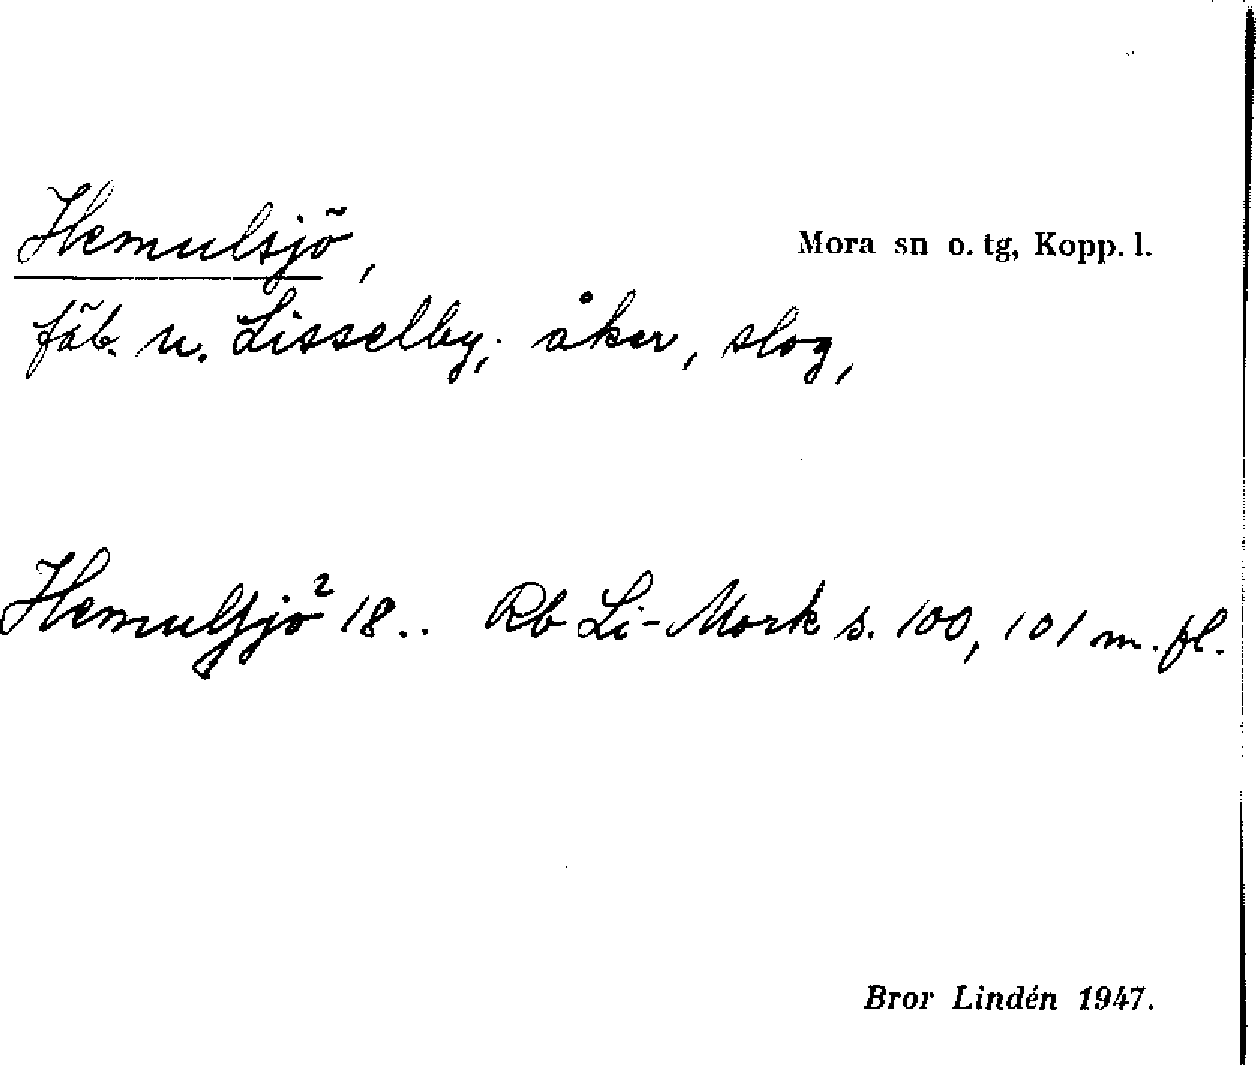 Hemulsjö,
Mora sn o. tg, Kopp. l.
fäb. u. Lisselby; åker, slog,
Hemulſjö² 18.. Rb Li-Mork s. 100, 101 m. fl.
Bror Lindén 1947.